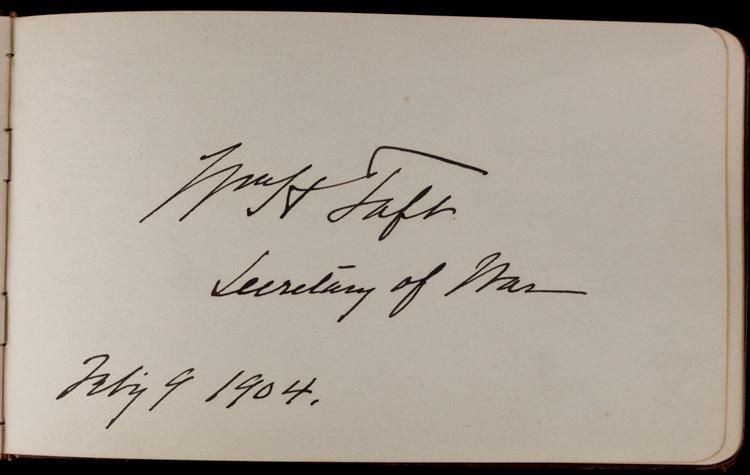 Wm H Taft
Secretary of War
Feb'y 9 1904.